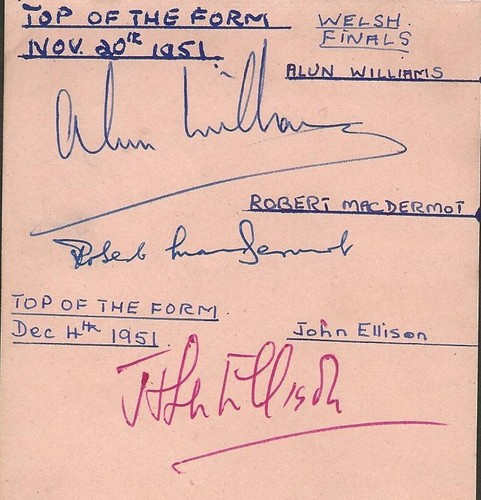 TOP OF THE FORM
WELSH.
FINALS
NOV. 20th 1951.
ALUN WILLIAMS
Alun Williams
ROBERT MACDERMOT
Robert MacDermot
TOP OF THE FORM.
Dec 4th 1951.
John Ellison
John Ellison